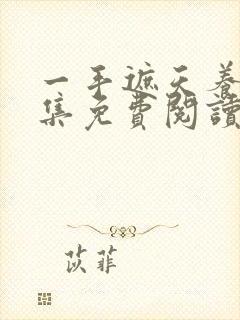 一手遮天養
集免費閱讀
苡菲